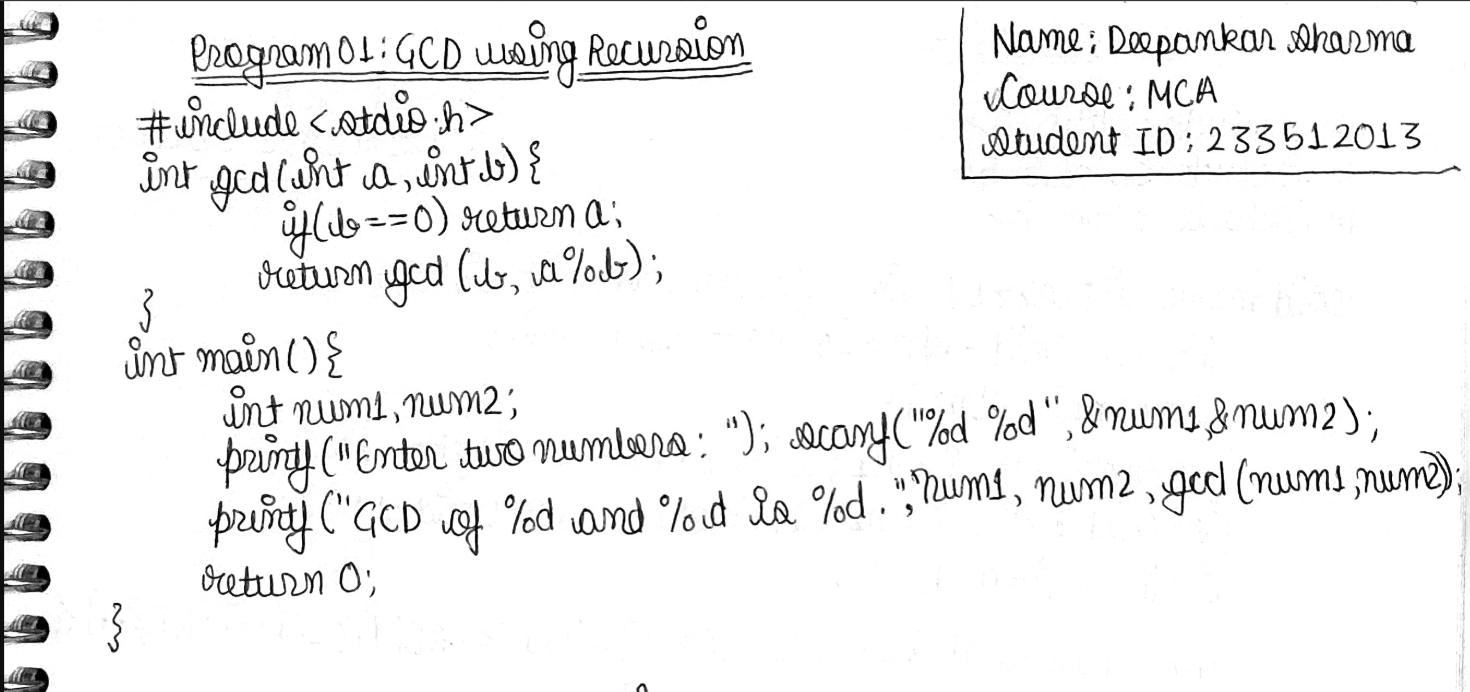 Program 01: GCD using Recursion
Name: Deepankar Sharma
Course: MCA
Student ID: 233512013
#include <stdio.h>
int gcd(int a, int b) {
if(b==0) return a;
return gcd (b, a%b);
}
int main() {
int num1, num2;
printf("Enter two numbers: "); scanf("%d %d", &num1, &num2);
printf("GCD of %d and %d is %d.", num1, num2, gcd(num1, num2));
return 0;
}